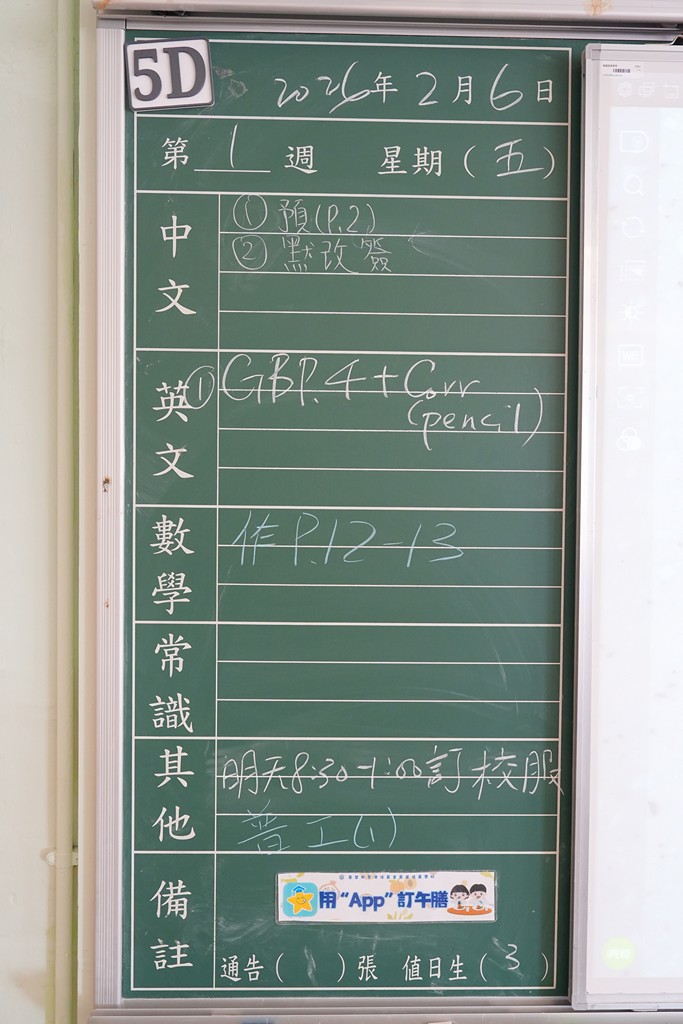 5D
2026年2月6日
第1週 星期(五)
中文
① 預(P.2)
② 默改簽
英文
① GBP.4+Corr
(pencil)
數學
作P.12-13
常識
其他
明天8:30-1:00訂校服
普工(1)
備註
用“App”訂午膳
通告( )張 值日生(3)